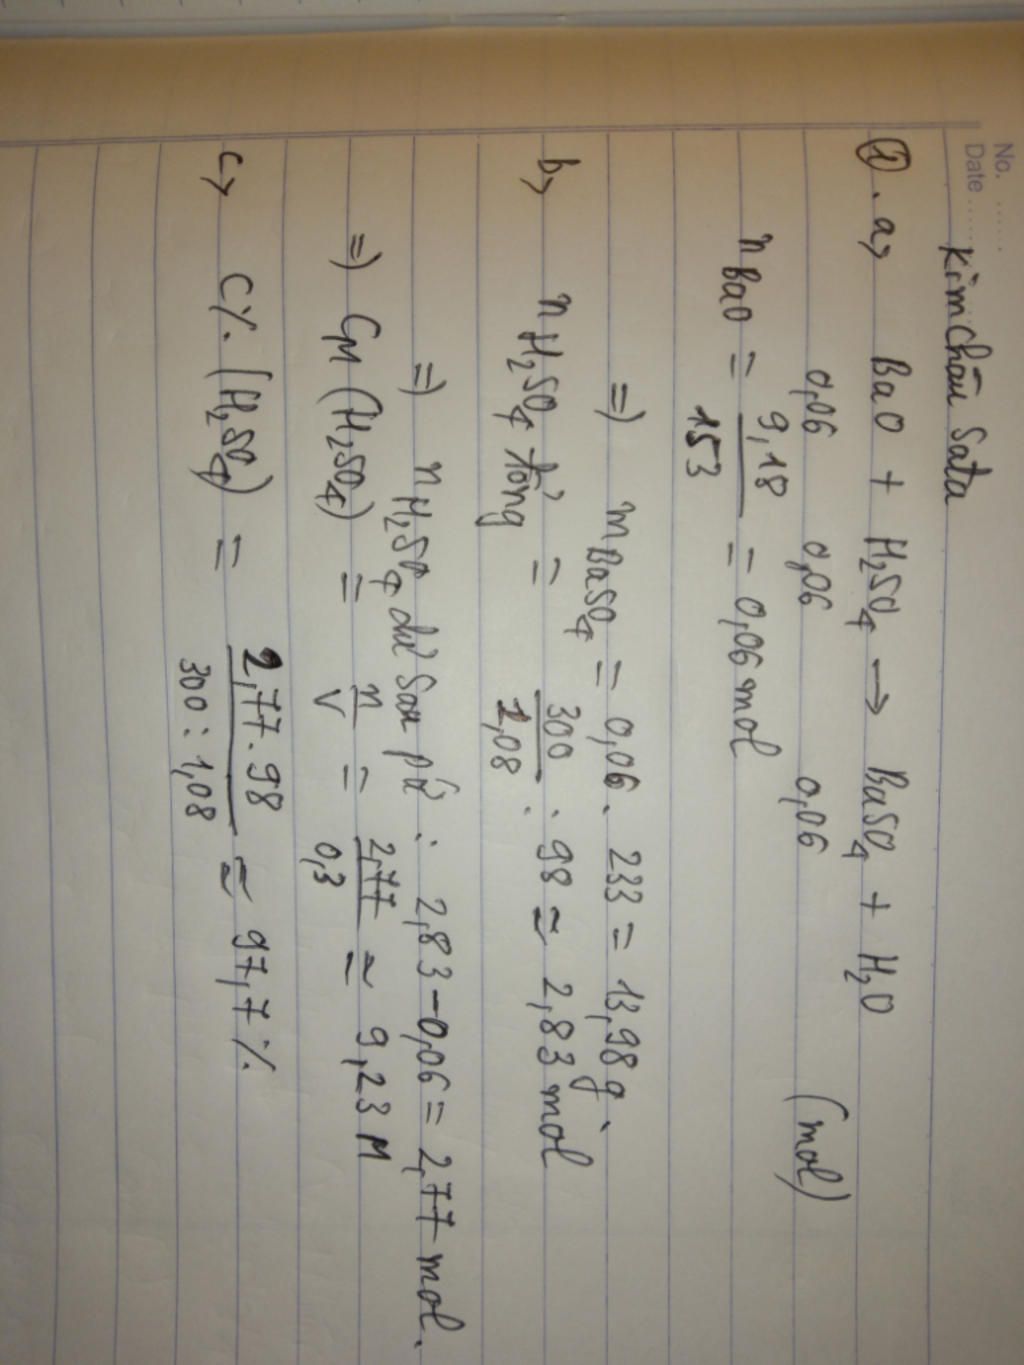 No. ......
Date ......
Kim Châu Sata
1. a, BaO + H₂SO₄ → BaSO₄ + H₂O
0,06 0,06 0,06 (mol)
n BaO = 9,18/153 = 0,06 mol
=) m BaSO₄ = 0,06. 233 = 13,98g.
b, n H₂SO₄ tổng = 300/1,08 . 98 ≈ 2,83 mol
=) n H₂SO₄ dư sau pứ : 2,83 - 0,06 = 2,77 mol.
=) CM (H₂SO₄) = n/V = 2,77/0,3 ≈ 9,23 M
c, C%. (H₂SO₄) = 2,77.98/300:1,08 ≈ 97,7%